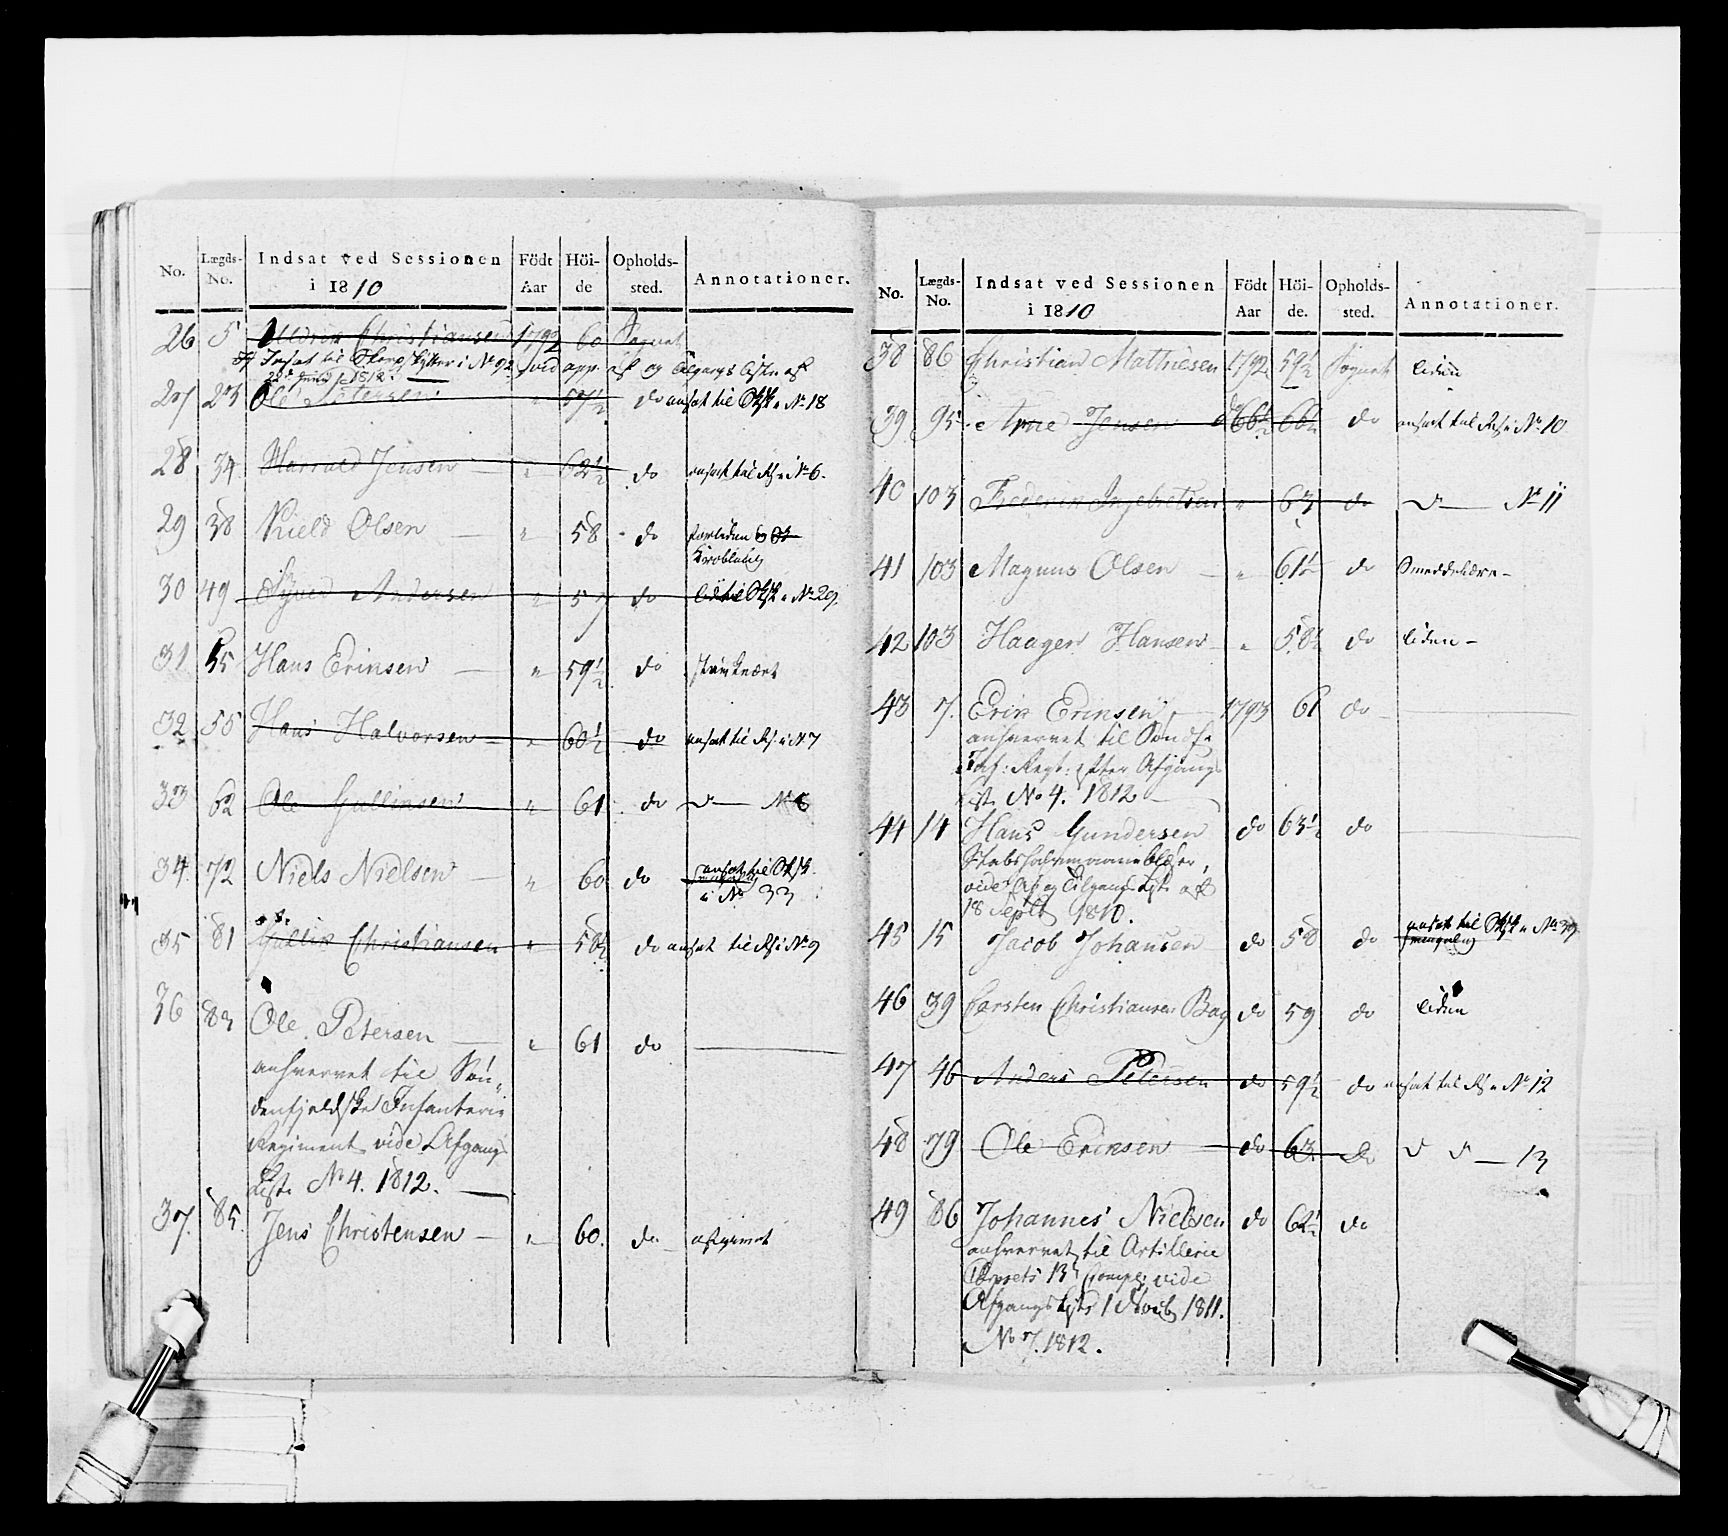 No. Lægds-No. Indsat ved Sessionen i 1810 Födt Aar Höi-de Opholds-sted. Annotationer.
26 5 Christiansen 1792 60 Sognet
Indsat til i No 92 vide og Tilgangs Liste af
22de Juni 1812.
27 23 Ole Petersen " 57½ do ansat til No 18
28 34 Harrald Jensen — " 62½ do ansat til i No 6.
29 38 Kield Olsen — " 58 do
30 49 Andersen " 57 do No 29.
31 55 Hans Ericsen — " 59½ do
32 55 Hans Halvorsen — " 60½ do ansat til i No 7
33 62 Ole Gullicsen " 61 do — No 8
34. 72 Niels Nielsen — " 60 do ansat til
i No 33
35 81 Gullic Christiansen " 58½ do ansat til i No 9
36 83 Ole Petersen — " 61 do —
anhvervet til Sön-
denfjeldske Infanterie
Regiment vide Afgangs
Liste No 4. 1812. —
37. 85. Jens Christensen — " 60. do
No. Lægds-No. Indsat ved Sessionen i 1810 Födt Aar Höi-de. Opholds-sted. Annotationer.
38 86 Christian Mathiesen 1792 59½ Sognet liden
39 95 Arne Jensen do 66½ do ansat til No 10
40 103 Frederic Ingebretsen " 63 do — No 11
41 103 Magnus Olsen — " 61½ do Smeddelære —
42 103 Haagen Hansen — " 58½ do liden —
43 7. Eric Ericsen — 1793 61 do —
anhvervet til Söndf.
Inf: Regt: efter Afgangs
List. No 4. 1812 —
44 14 Hans Gundersen do 63½ do —
vide Af og Tilgangs List. af
18 Septb 1810.
45 15 Jacob Johansen do 58 do ansat til No 39
46 39 Carsten Christiansen Bag do 59 do liden
47 46 Anders Petersen do 59½ do ansat til No 12
48 79 Ole Ericsen — do 63 do — 13
49 86 Johannes Nielsen do 62½ do
anhvervet til Artillerie
Corpsets 13de Comp. vide
Afgangs Liste 1 Novb 1811.
No 7. 1812.